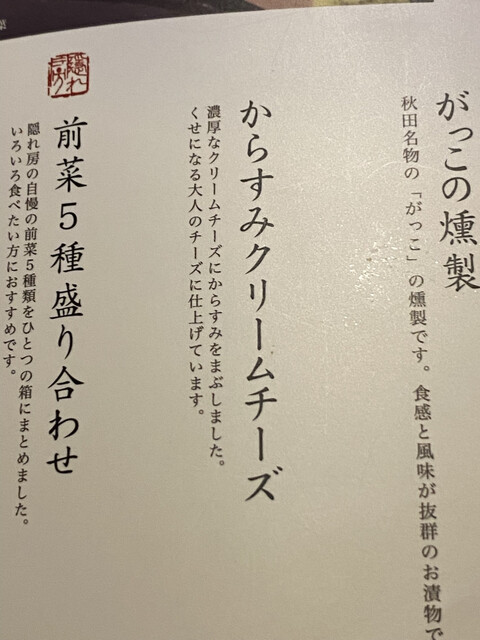 がっこの燻製
秋田名物の「がっこ」の燻製です。食感と風味が抜群のお漬物で
からすみクリームチーズ
濃厚なクリームチーズにからすみをまぶしました。
くせになる大人のチーズに仕上げています。
隠れ房
前菜5種盛り合わせ
隠れ房の自慢の前菜5種類をひとつの箱にまとめました。
いろいろ食べたい方におすすめです。